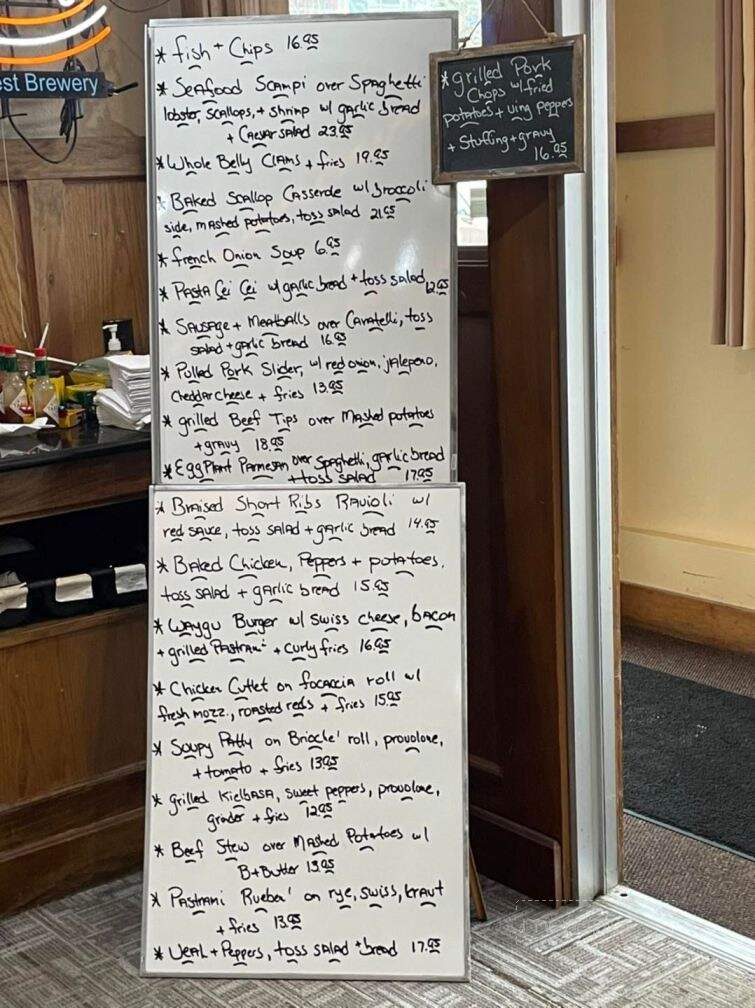 est Brewery
* fish + Chips 16.95
* Seafood Scampi over Spaghetti
lobster, scallops, + shrimp w/ garlic bread
+ Caesar salad 23.95
* Whole Belly Clams + fries 19.95
* Baked Scallop Casserole w/ broccoli
side, mashed potatoes, toss salad 21.95
* french Onion Soup 6.95
* Pasta Cei Cei w/ garlic bread + toss salad 12.95
* Sausage + Meatballs over Cavatelli, toss
salad + garlic bread 16.95
* Pulled Pork Slider, w/ red onion, jalepeno,
cheddar cheese + fries 13.95
* grilled Beef Tips over Mashed potatoes
+ gravy 18.95
* EggPlant Parmesan over spaghetti, garlic bread
+ toss salad 17.95
* Braised Short Ribs Ravioli w/
red sauce, toss salad + garlic bread 14.95
* Baked Chicken, Peppers + potatoes,
toss salad + garlic bread 15.95
* Waygu Burger w/ swiss cheese, bacon
+ grilled Pastrami + curly fries 16.95
* Chicken Cutlet on focaccia roll w/
fresh mozz., roasted reds + fries 15.95
* Soupy Patty on Brioche' roll, provolone,
+ tomato + fries 13.95
* grilled Kielbasa, sweet peppers, provolone,
grinder + fries 12.95
* Beef Stew over Mashed Potatoes w/
B+Butter 13.95
* Pastrami Rueben' on rye, swiss, kraut
+ fries 13.95
* Veal + Peppers, toss salad + bread 17.95
* grilled Pork
Chops w/ fried
potatoes + ving peppers
+ Stuffing + gravy
16.95